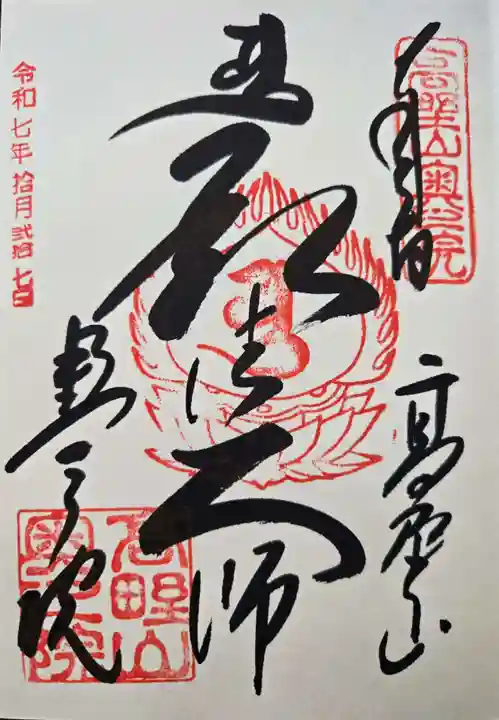 高野山奥之院
奉拝
高野山
法大師
令和七年拾月弐拾七日
奥之院
高野山奥之院